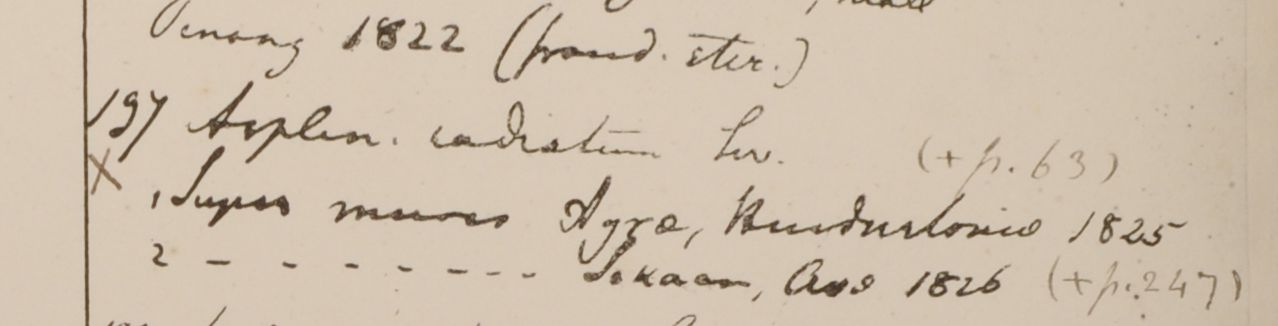 Penang 1822 (frond. ster.)
197 Asplen. radiatum Sw. (+p. 63)
X
1 Supra muros Agra, Hindustania 1825
2 - - - - - - - - , 1826 (+p. 247)